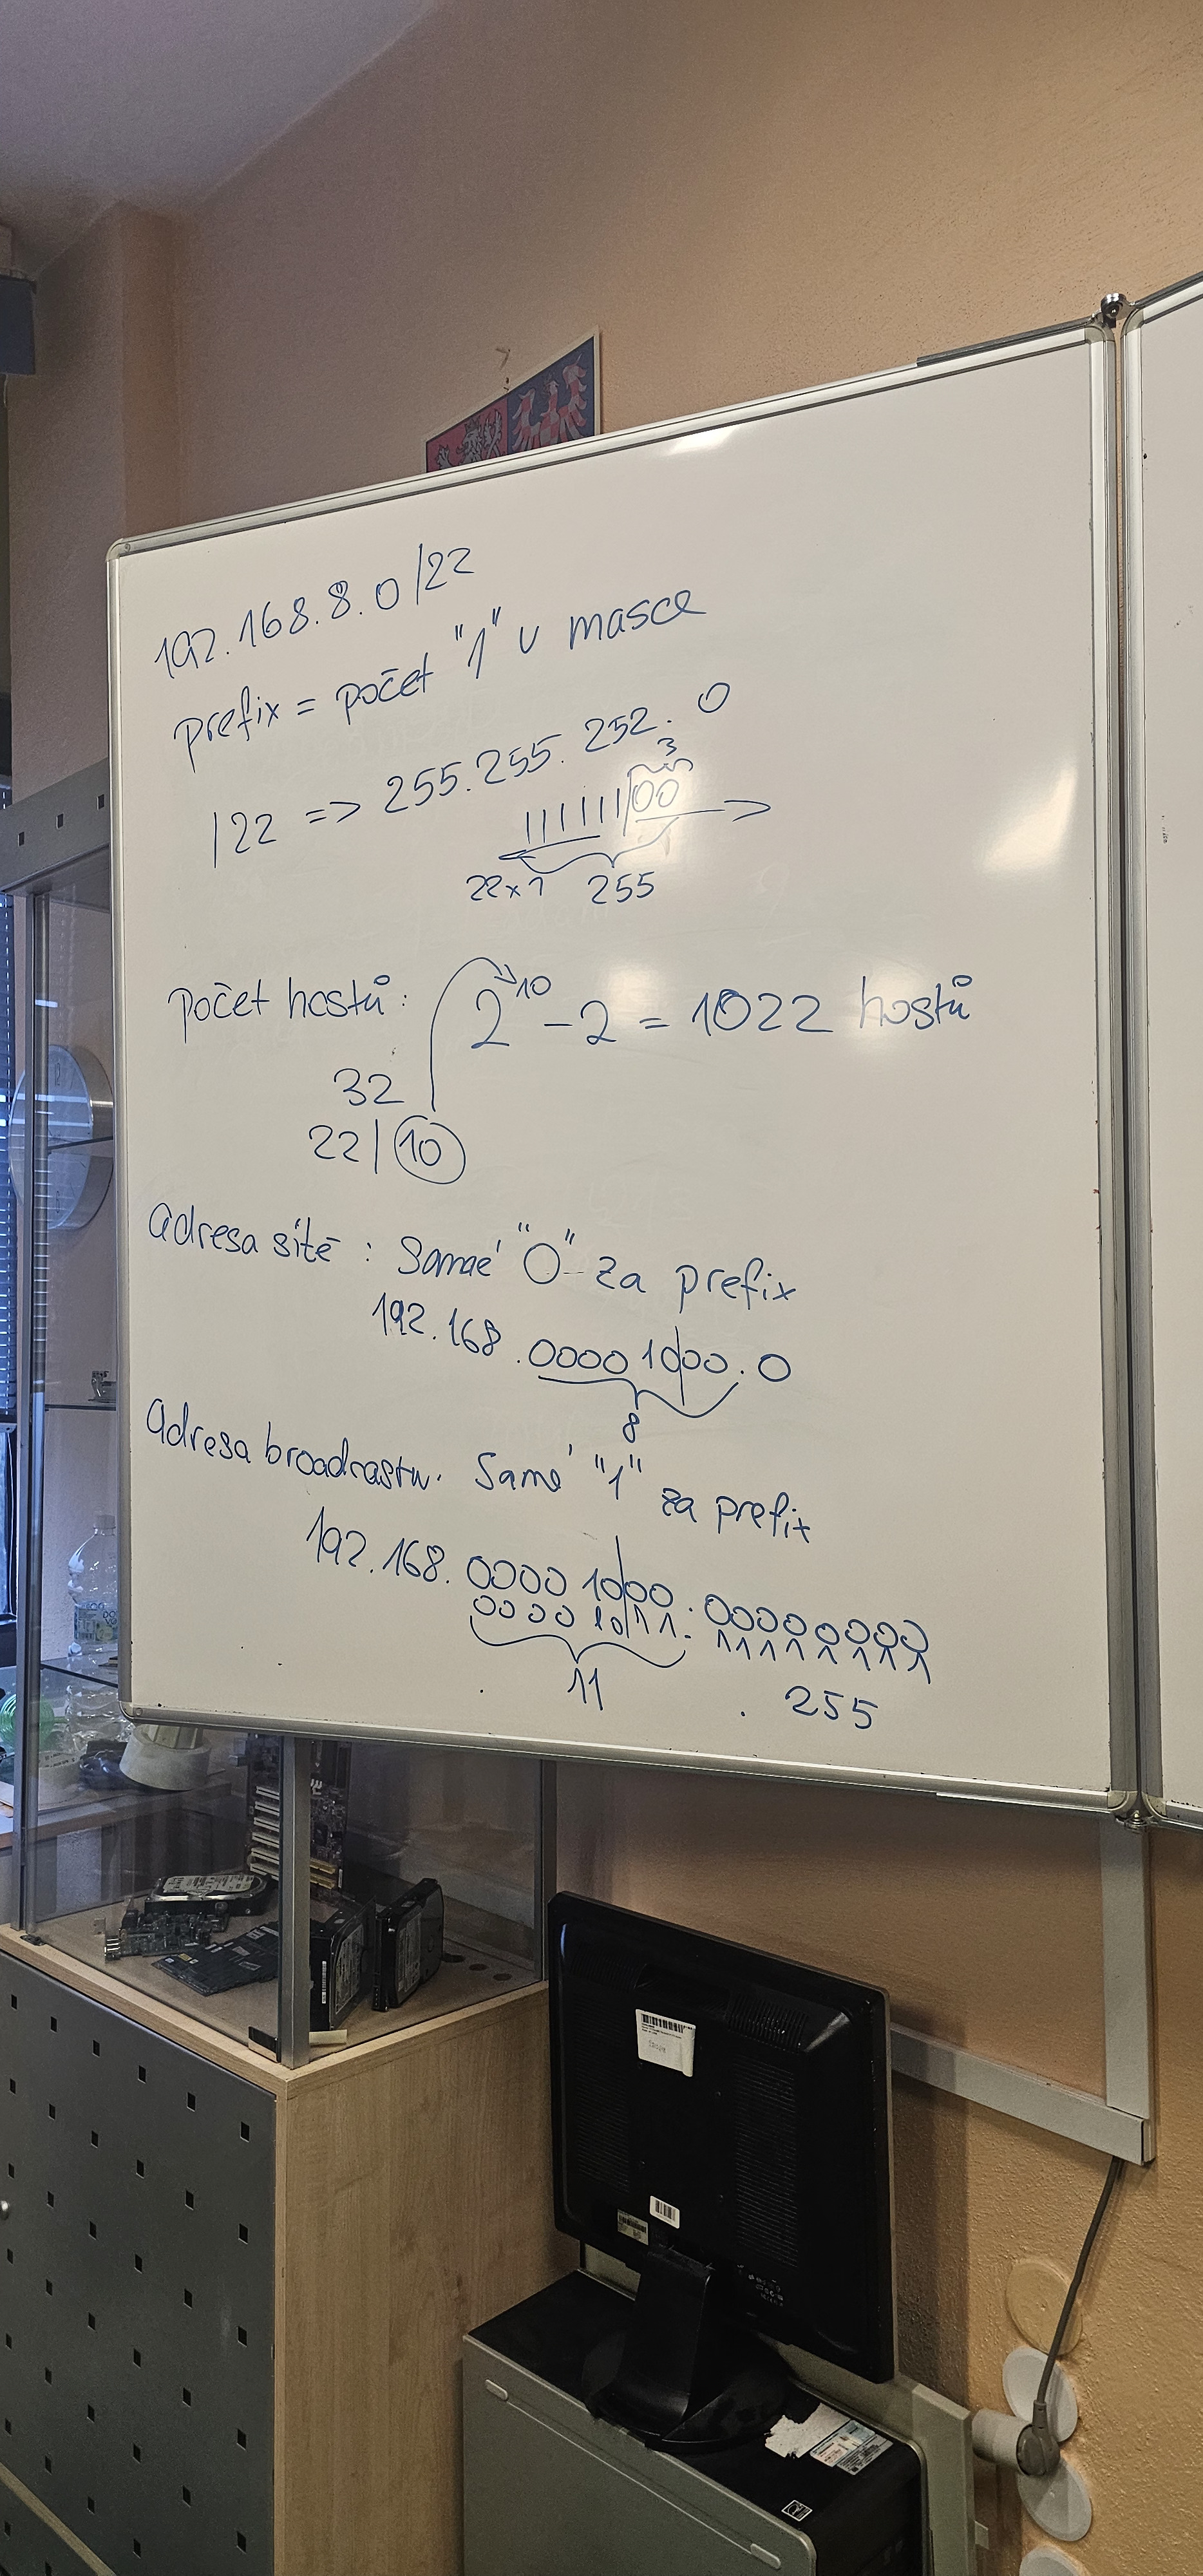 192.168.8.0/22
prefix = počet "1" v masce
/22 => 255.255.252.0
3
11111100
22x1 255
počet hostů: 2^10 - 2 = 1022 hostů
32
22/10
adresa sítě: Samé "0" za prefix
192.168.0000 1000.0
8
adresa broadcastu. Samé "1" za prefix
192.168.0000 1000.00000000
0000 1011.11111111
11 . 255